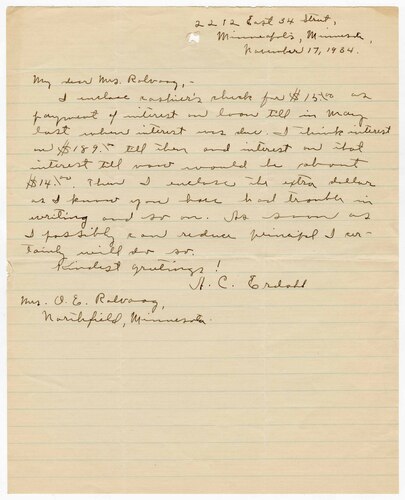 2212 East 34 Street,
Minneapolis, Minnesota,
November 17, 1934.
My dear Mrs. Rolvaag,-
I enclose cashier's check for $15.00 as
payment of interest on loan till in May
last, when interest was due. I think interest
on $189.50 till then and interest on that
interest till now would be about
$14.50 Then I enclose the extra dollar
as I know you have had trouble in
writing and so on. As soon as
I possibly can reduce principal I cer-
tainly will do so.
Kindest greetings!
A. C. Erdahl
Mrs. O. E. Rolvaag,
Northfield, Minnesota.